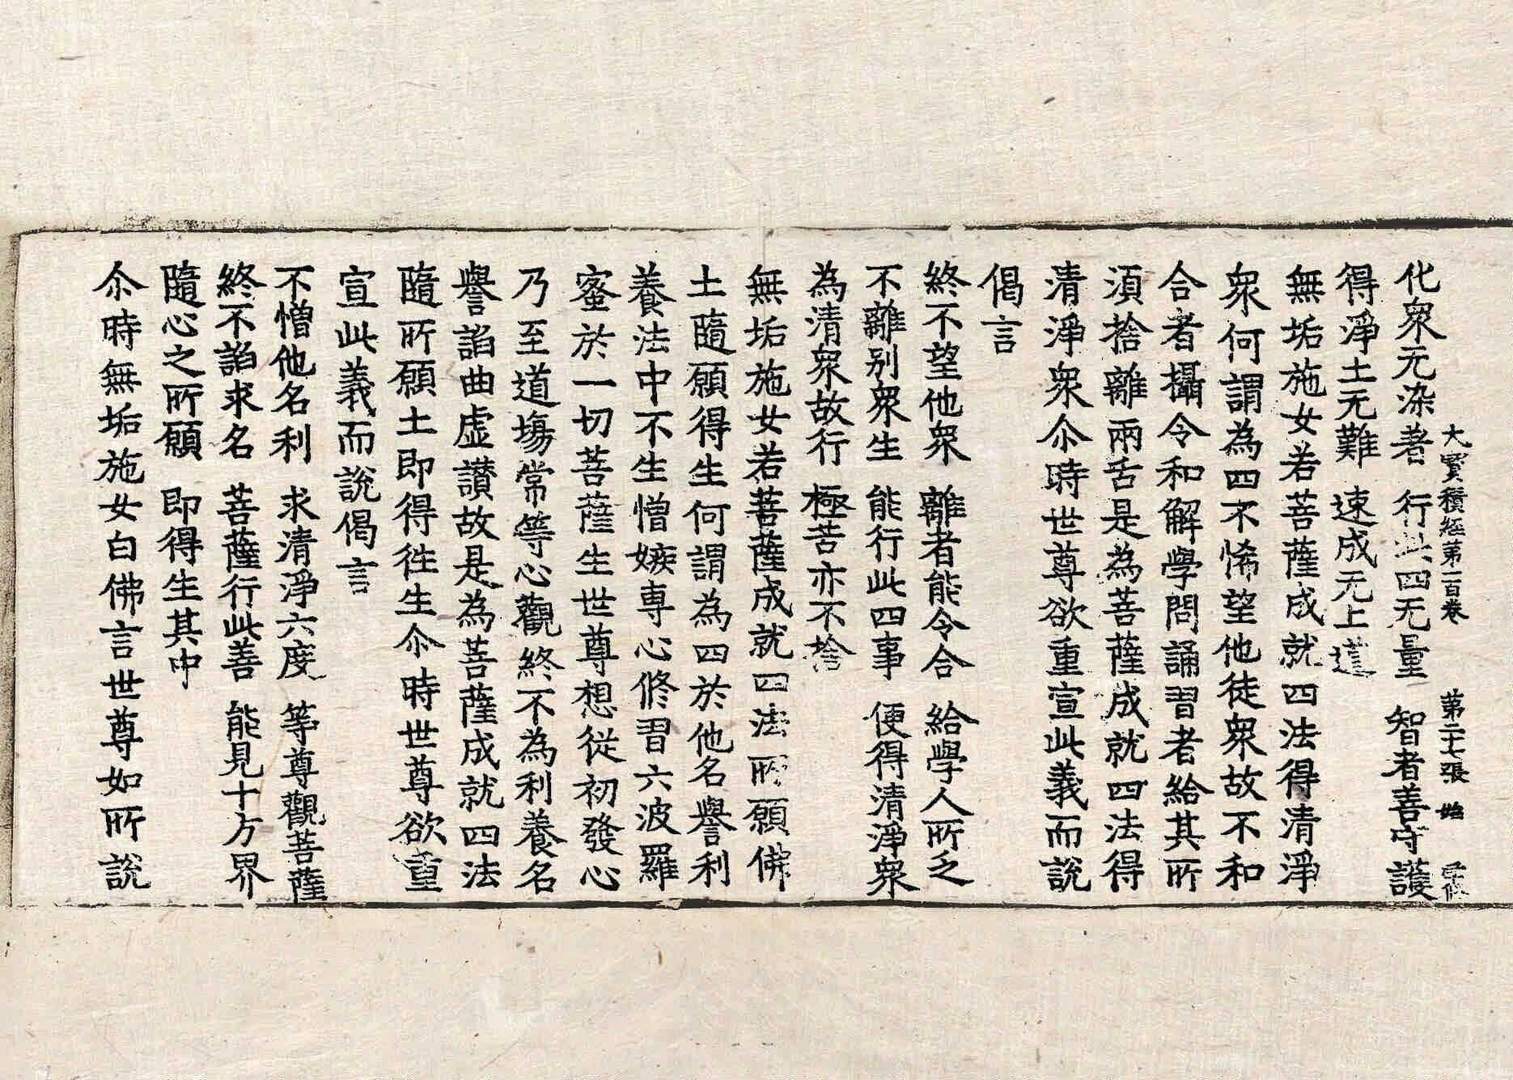 大寶積經第一百卷 第二十七張 始
化衆无染著 行此四无量 智者善守護
得淨土无難 速成无上道
無垢施女若菩薩成就四法得清淨
衆何謂為四不悕望他徒衆故不和
合者攝令和解學問誦習者給其所
湏捨離兩舌是為菩薩成就四法得
清淨衆尒時世尊欲重宣此義而說
偈言
終不望他衆 離者能令合 給學人所乏
不離别衆生 能行此四事 便得清淨衆
為清衆故行 極苦亦不捨
無垢施女若菩薩成就四法所願佛
土隨願得生何謂為四於他名譽利
養法中不生憎嫉專心修習六波羅
蜜於一切菩薩生世尊想從初發心
乃至道塲常等心觀終不為利養名
譽諂曲虛讃故是為菩薩成就四法
隨所願土即得徃生尒時世尊欲重
宣此義而說偈言
不憎他名利 求清淨六度 等尊觀菩薩
終不諂求名 菩薩行此善 能見十方界
隨心之所願 即得生其中
尒時無垢施女白佛言世尊如所說